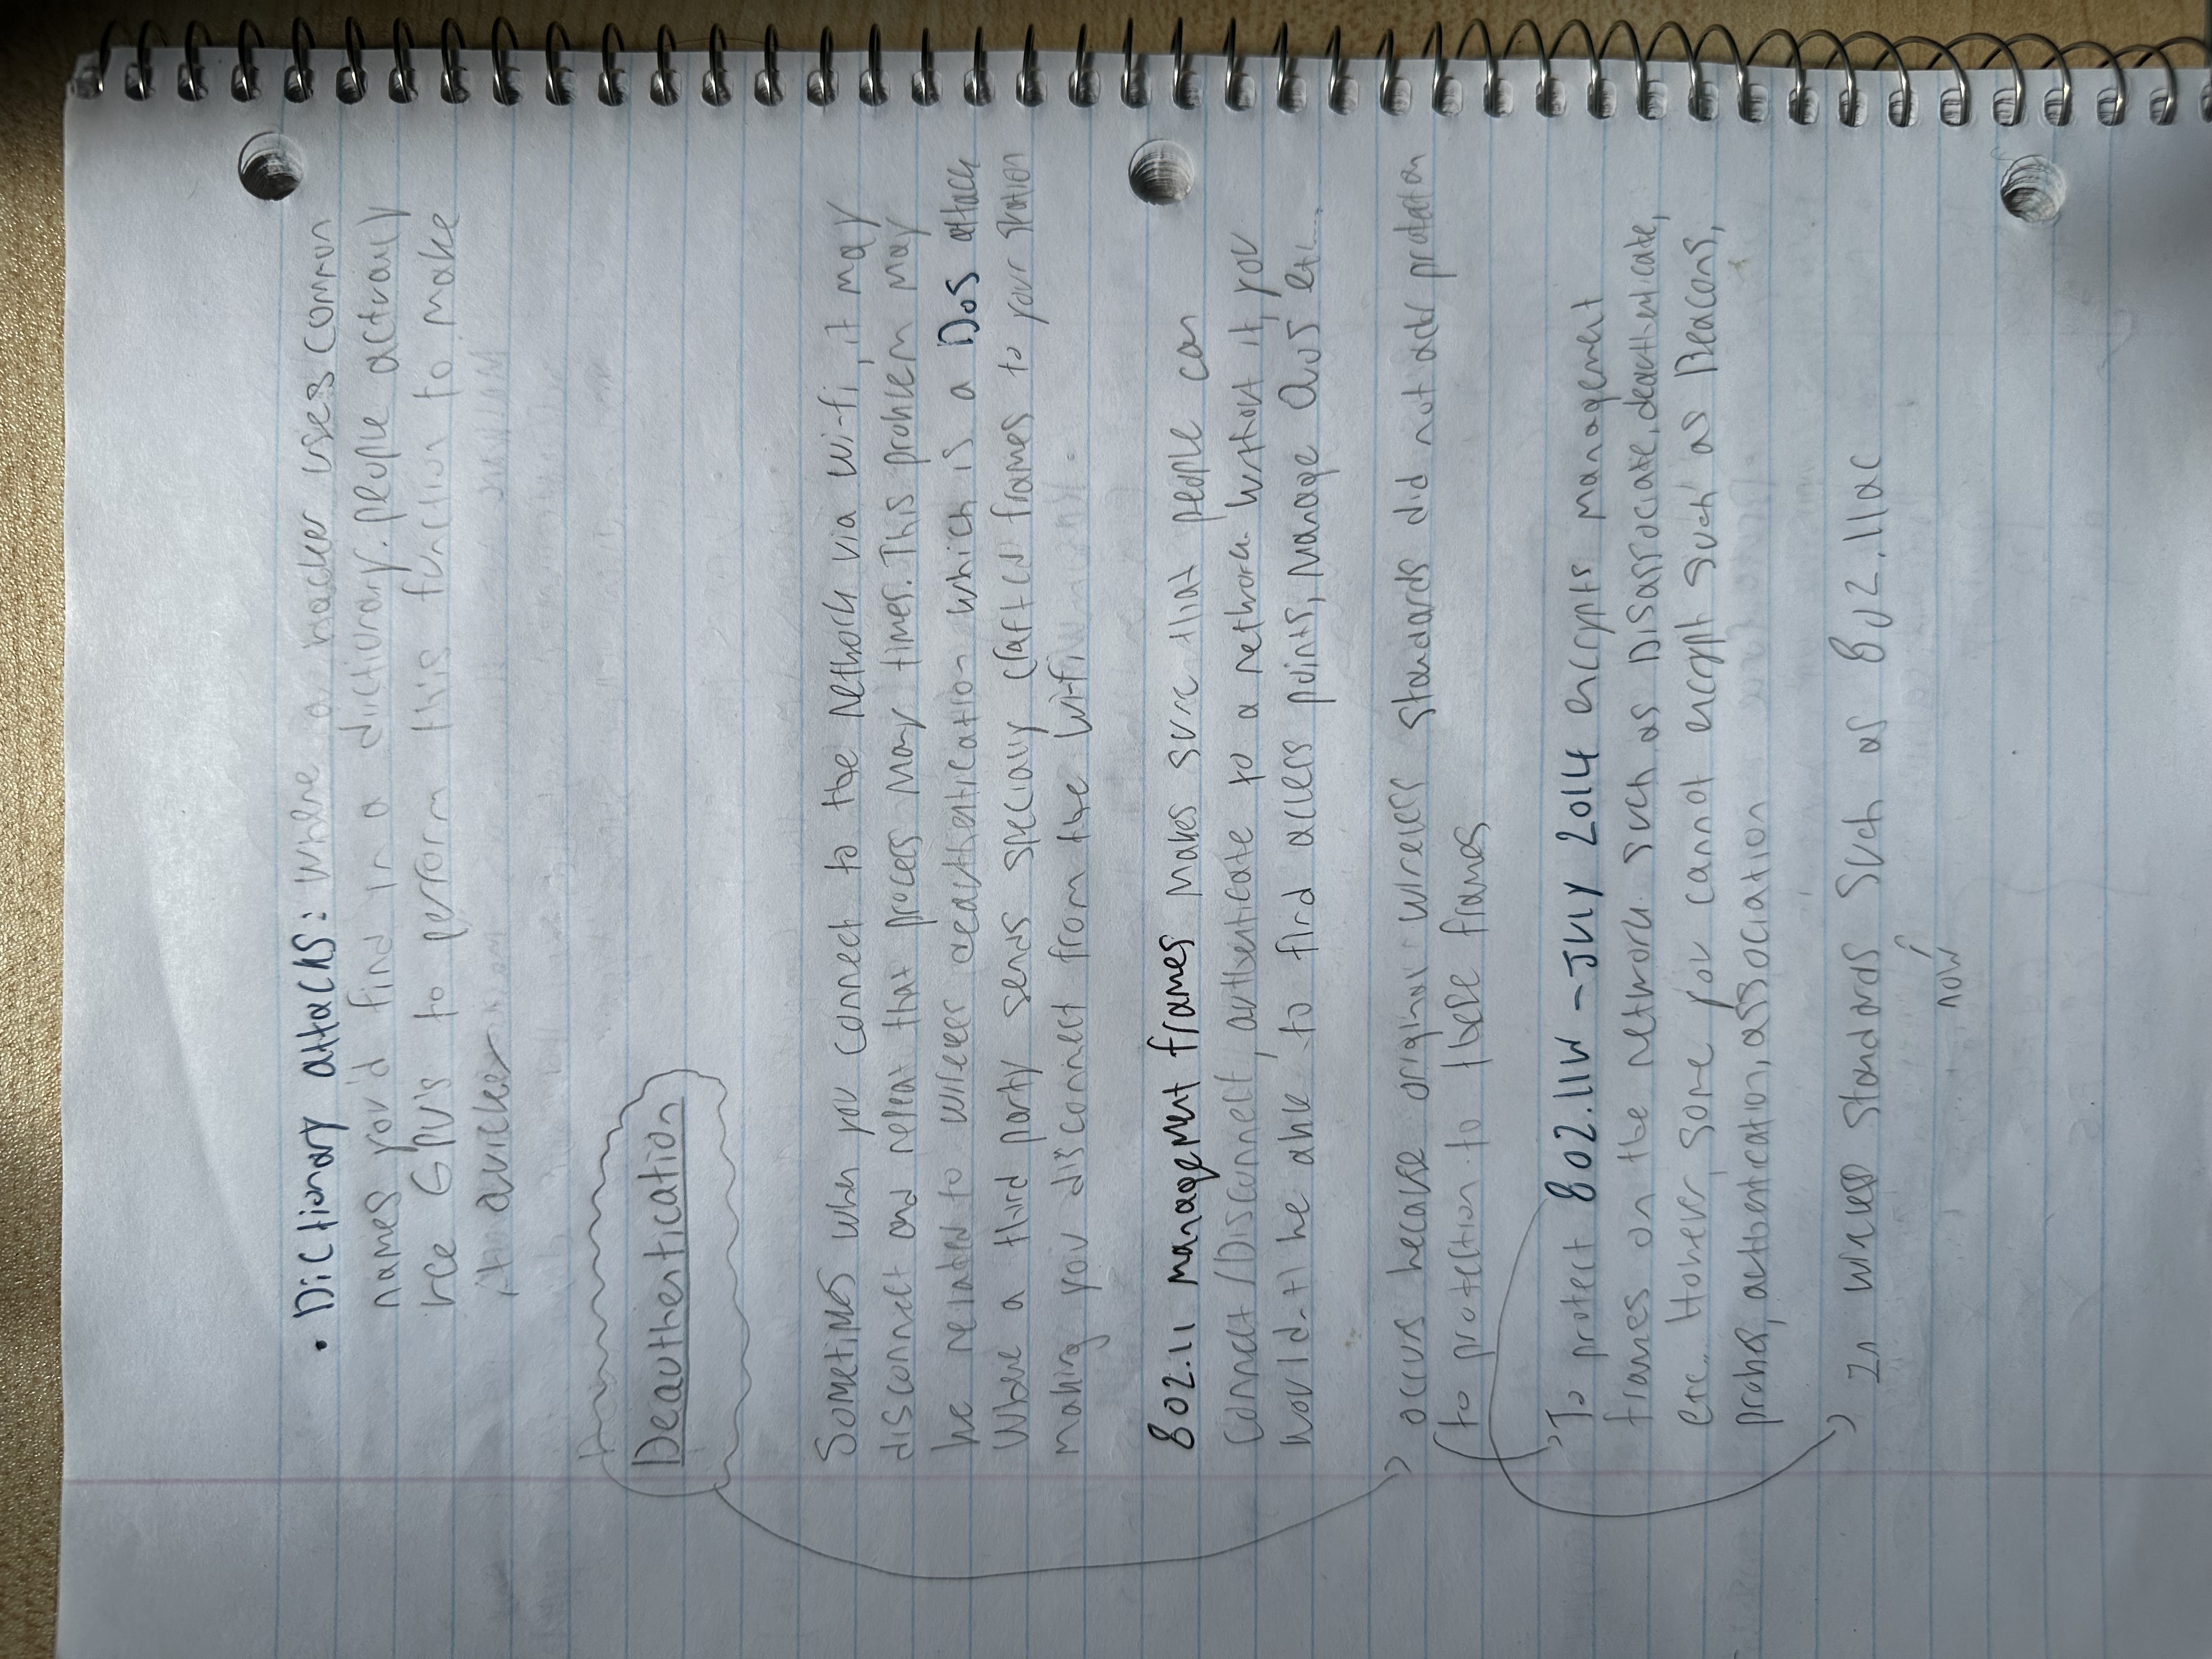 • Dictionary attacks: Where a hacker uses common
names you'd find in a dictionary. people actually
use GPU's to perform this function to make
it quicker
Deauthentication
Sometimes when you connect to the network via Wi-fi, it may
disconnect and repeat that process many times. This problem may
be related to wireless deauthentication which is a DoS attack
Where a third party sends specially crafted frames to your station
making you disconnect from the Wi-fi
802.11 management frames makes sure that people can
connect/Disconnect, authenticate to a network. Without it, you
would-n't be able to find access points, manage QoS etc...
occurs because original wireless standards did not add protection
to protection to these frames
To protect 802.11W - July 2014 encrypts management
frames on the network such as Disassociate, deauthenticate,
etc.. However, some you cannot encrypt such as Beacons,
probes, authentication, association
In wireless standards such as 802.11ac
now